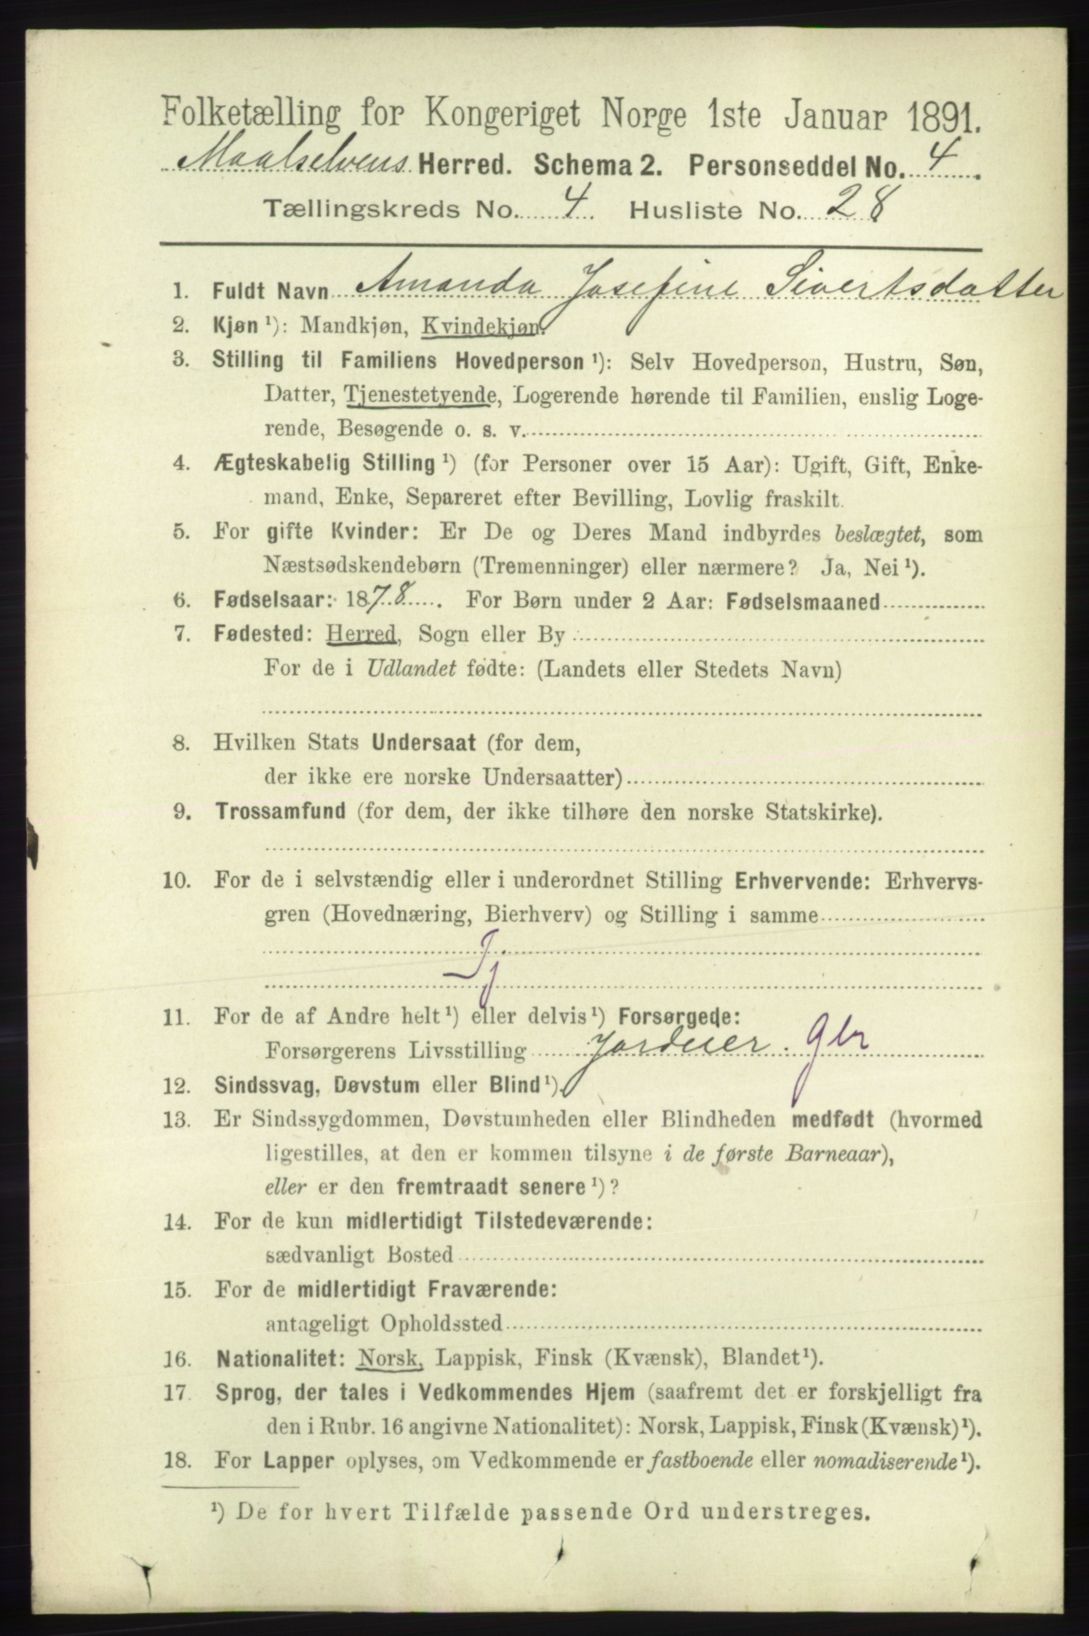 Folketælling for Kongeriget Norge 1ste Januar 1891.
Maalselvens Herred. Schema 2. Personseddel No. 4.
Tællingskreds No. 4. Husliste No. 28
1. Fuldt Navn Amanda Josefine Sivertsdatter
2. Kjøn ¹): Mandkjøn, Kvindekjøn.
3. Stilling til Familiens Hovedperson ¹): Selv Hovedperson, Hustru, Søn,
Datter, Tjenestetyende, Logerende hørende til Familien, enslig Loge-
rende, Besøgende o. s. v.
4. Ægteskabelig Stilling ¹) (for Personer over 15 Aar): Ugift, Gift, Enke-
mand, Enke, Separeret efter Bevilling, Lovlig fraskilt.
5. For gifte Kvinder: Er De og Deres Mand indbyrdes beslægtet, som
Næstsødskendebørn (Tremenninger) eller nærmere? Ja, Nei ¹).
6. Fødselsaar: 1878. For Børn under 2 Aar: Fødselsmaaned
7. Fødested: Herred, Sogn eller By
For de i Udlandet fødte: (Landets eller Stedets Navn)
8. Hvilken Stats Undersaat (for dem,
der ikke ere norske Undersaatter)
9. Trossamfund (for dem, der ikke tilhøre den norske Statskirke).
10. For de i selvstændig eller i underordnet Stilling Erhvervende: Erhvervs-
gren (Hovednæring, Bierhverv) og Stilling i samme
Tj
11. For de af Andre helt ¹) eller delvis ¹) Forsørgede:
Forsørgerens Livsstilling Jordeier. Gbr
12. Sindssvag, Døvstum eller Blind ¹).
13. Er Sindssygdommen, Døvstumheden eller Blindheden medfødt (hvormed
ligestilles, at den er kommen tilsyne i de første Barneaar),
eller er den fremtraadt senere ¹)?
14. For de kun midlertidigt Tilstedeværende:
sædvanligt Bosted
15. For de midlertidigt Fraværende:
antageligt Opholdssted
16. Nationalitet: Norsk, Lappisk, Finsk (Kvænsk), Blandet ¹).
17 Sprog, der tales i Vedkommendes Hjem (saafremt det er forskjelligt fra
den i Rubr. 16 angivne Nationalitet): Norsk, Lappisk, Finsk (Kvænsk) ¹).
18. For Lapper oplyses, om Vedkommende er fastboende eller nomadiserende ¹).
¹) De for hvert Tilfælde passende Ord understreges.